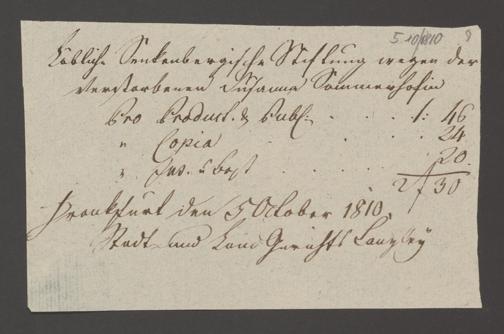 5.10.1810 8
Löbliche Senkenbergische Stiftung wegen der
verstorbenen Susanna Sommerhofin
Pro Product. & Publ. . . . . 1: 46
" Copia . . . . 24
" Ins. u . . . . 20.
2 f 30
Frankfurt den 5 October 1810.
Stadt- und Land Gerichts Canzley